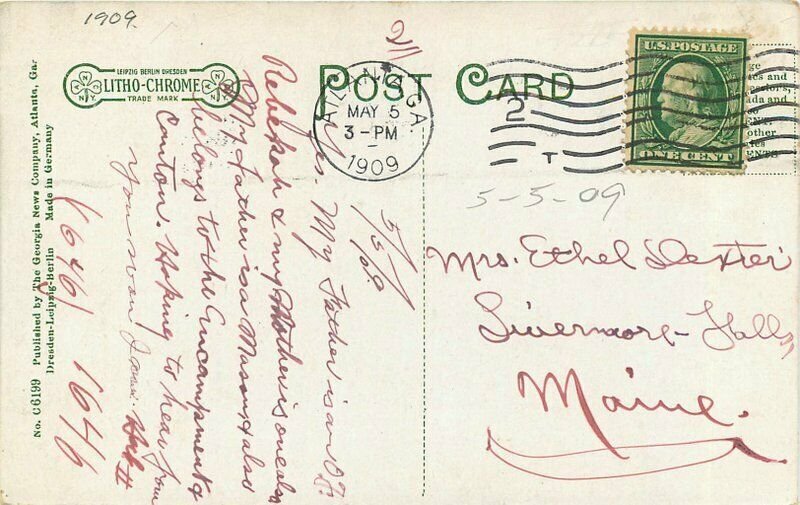 1909.
LEIPZIG BERLIN DRESDEN
LITHO-CHROME
TRADE MARK
N.Y.
POST CARD
ATLANTA, GA.
MAY 5
3-PM
1909
2
T
U.S. POSTAGE
ONE CENT
5-5-09
No. C6199 Published by The Georgia News Company, Atlanta, Ga.
Dresden-Leipzig-Berlin Made in Germany
5/5/09.
Yes. My Father is an O.F.
Rebekah & my Mother is one also
My Father is a Mason & also
belongs to the Encampment &
Canton. Hoping to hear from
you soon I am
1646
Mrs. Ethel Dexter
Livermore-Falls,
Maine.